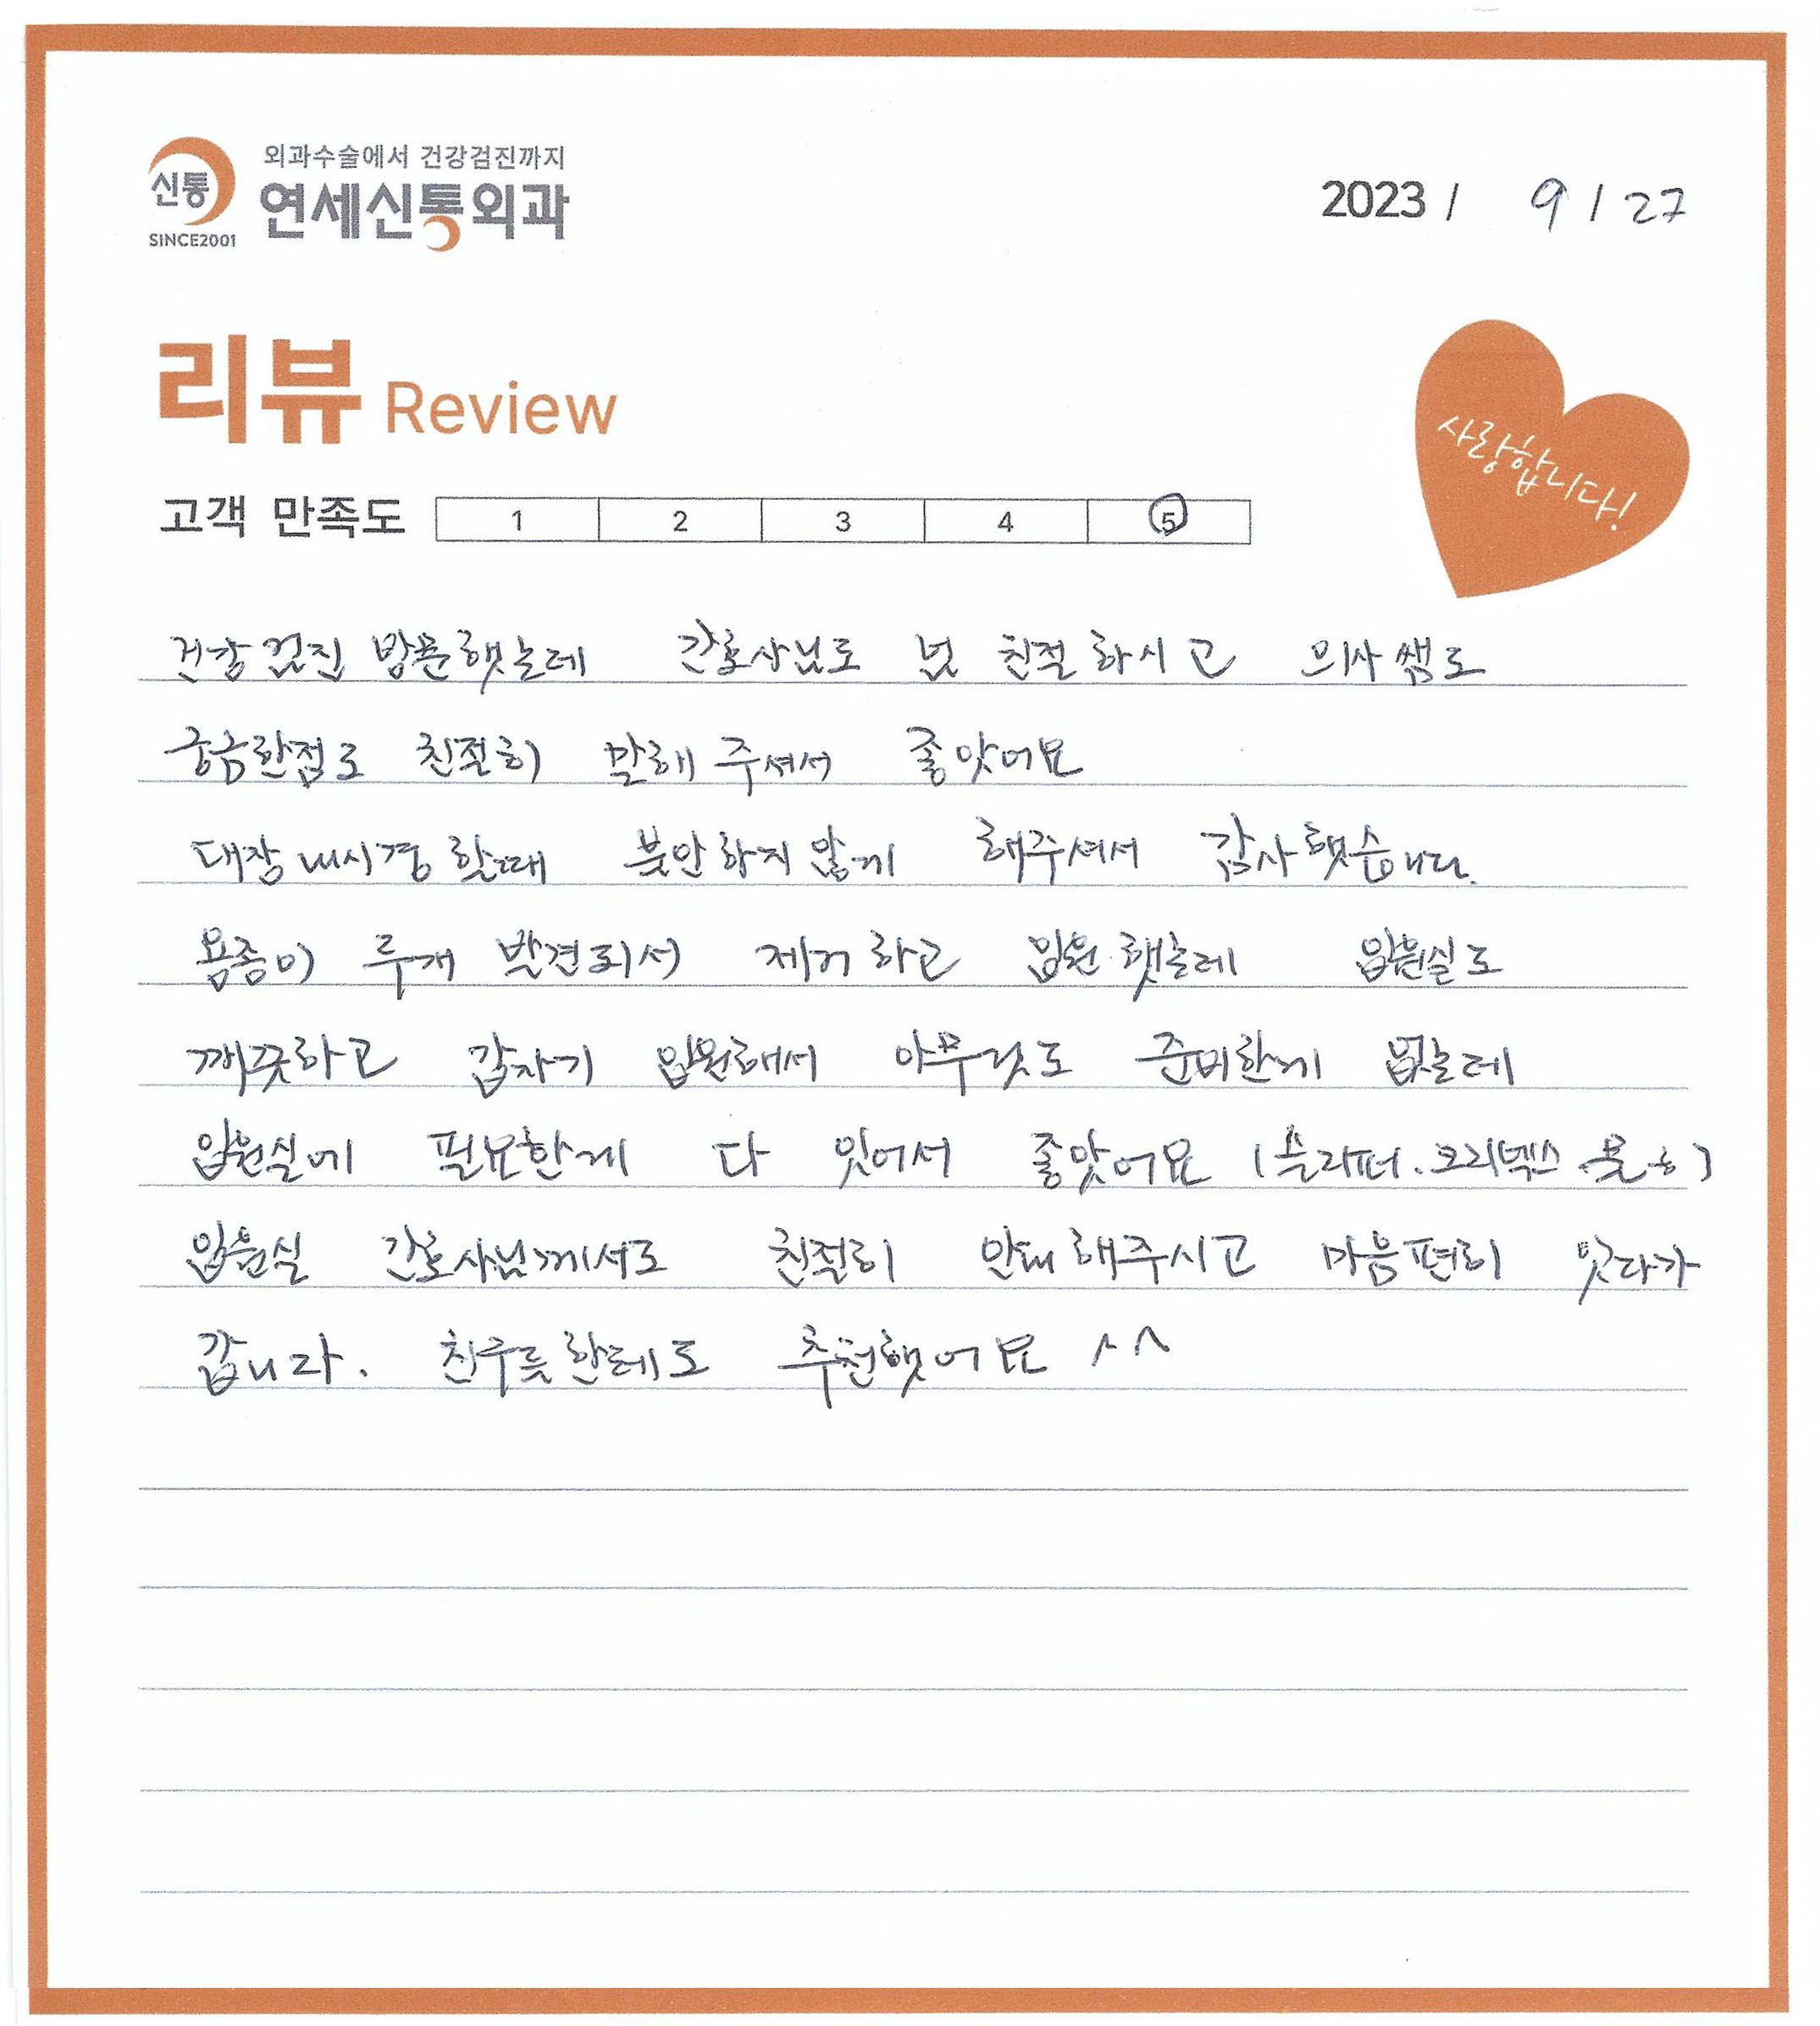 외과수술에서 건강검진까지
신통
연세신통외과
SINCE2001
2023 / 9 / 27
리뷰 Review
사랑합니다!
고객 만족도 1 2 3 4 5
건강검진 방문햇는데 간호사님도 넘 친절하시고 의사쌤도
궁금한점도 친절히 말해주셔서 좋앗어요
대장내시경 할때 불안하지않게 해주셔서 감사햇습니다.
용종이 두개 발견되서 제거하고 입원햇는데 입원실도
깨끗하고 갑자기 입원해서 아무것도 준비한게 없는데
입원실에 필요한게 다 잇어서 좋앗어요 (슬리퍼.크리넥스.물.등)
입원실 간호사님께서도 친절히 안내해주시고 마음편히 잇다가
갑니다. 친구들한테도 추천햇어요 ^^